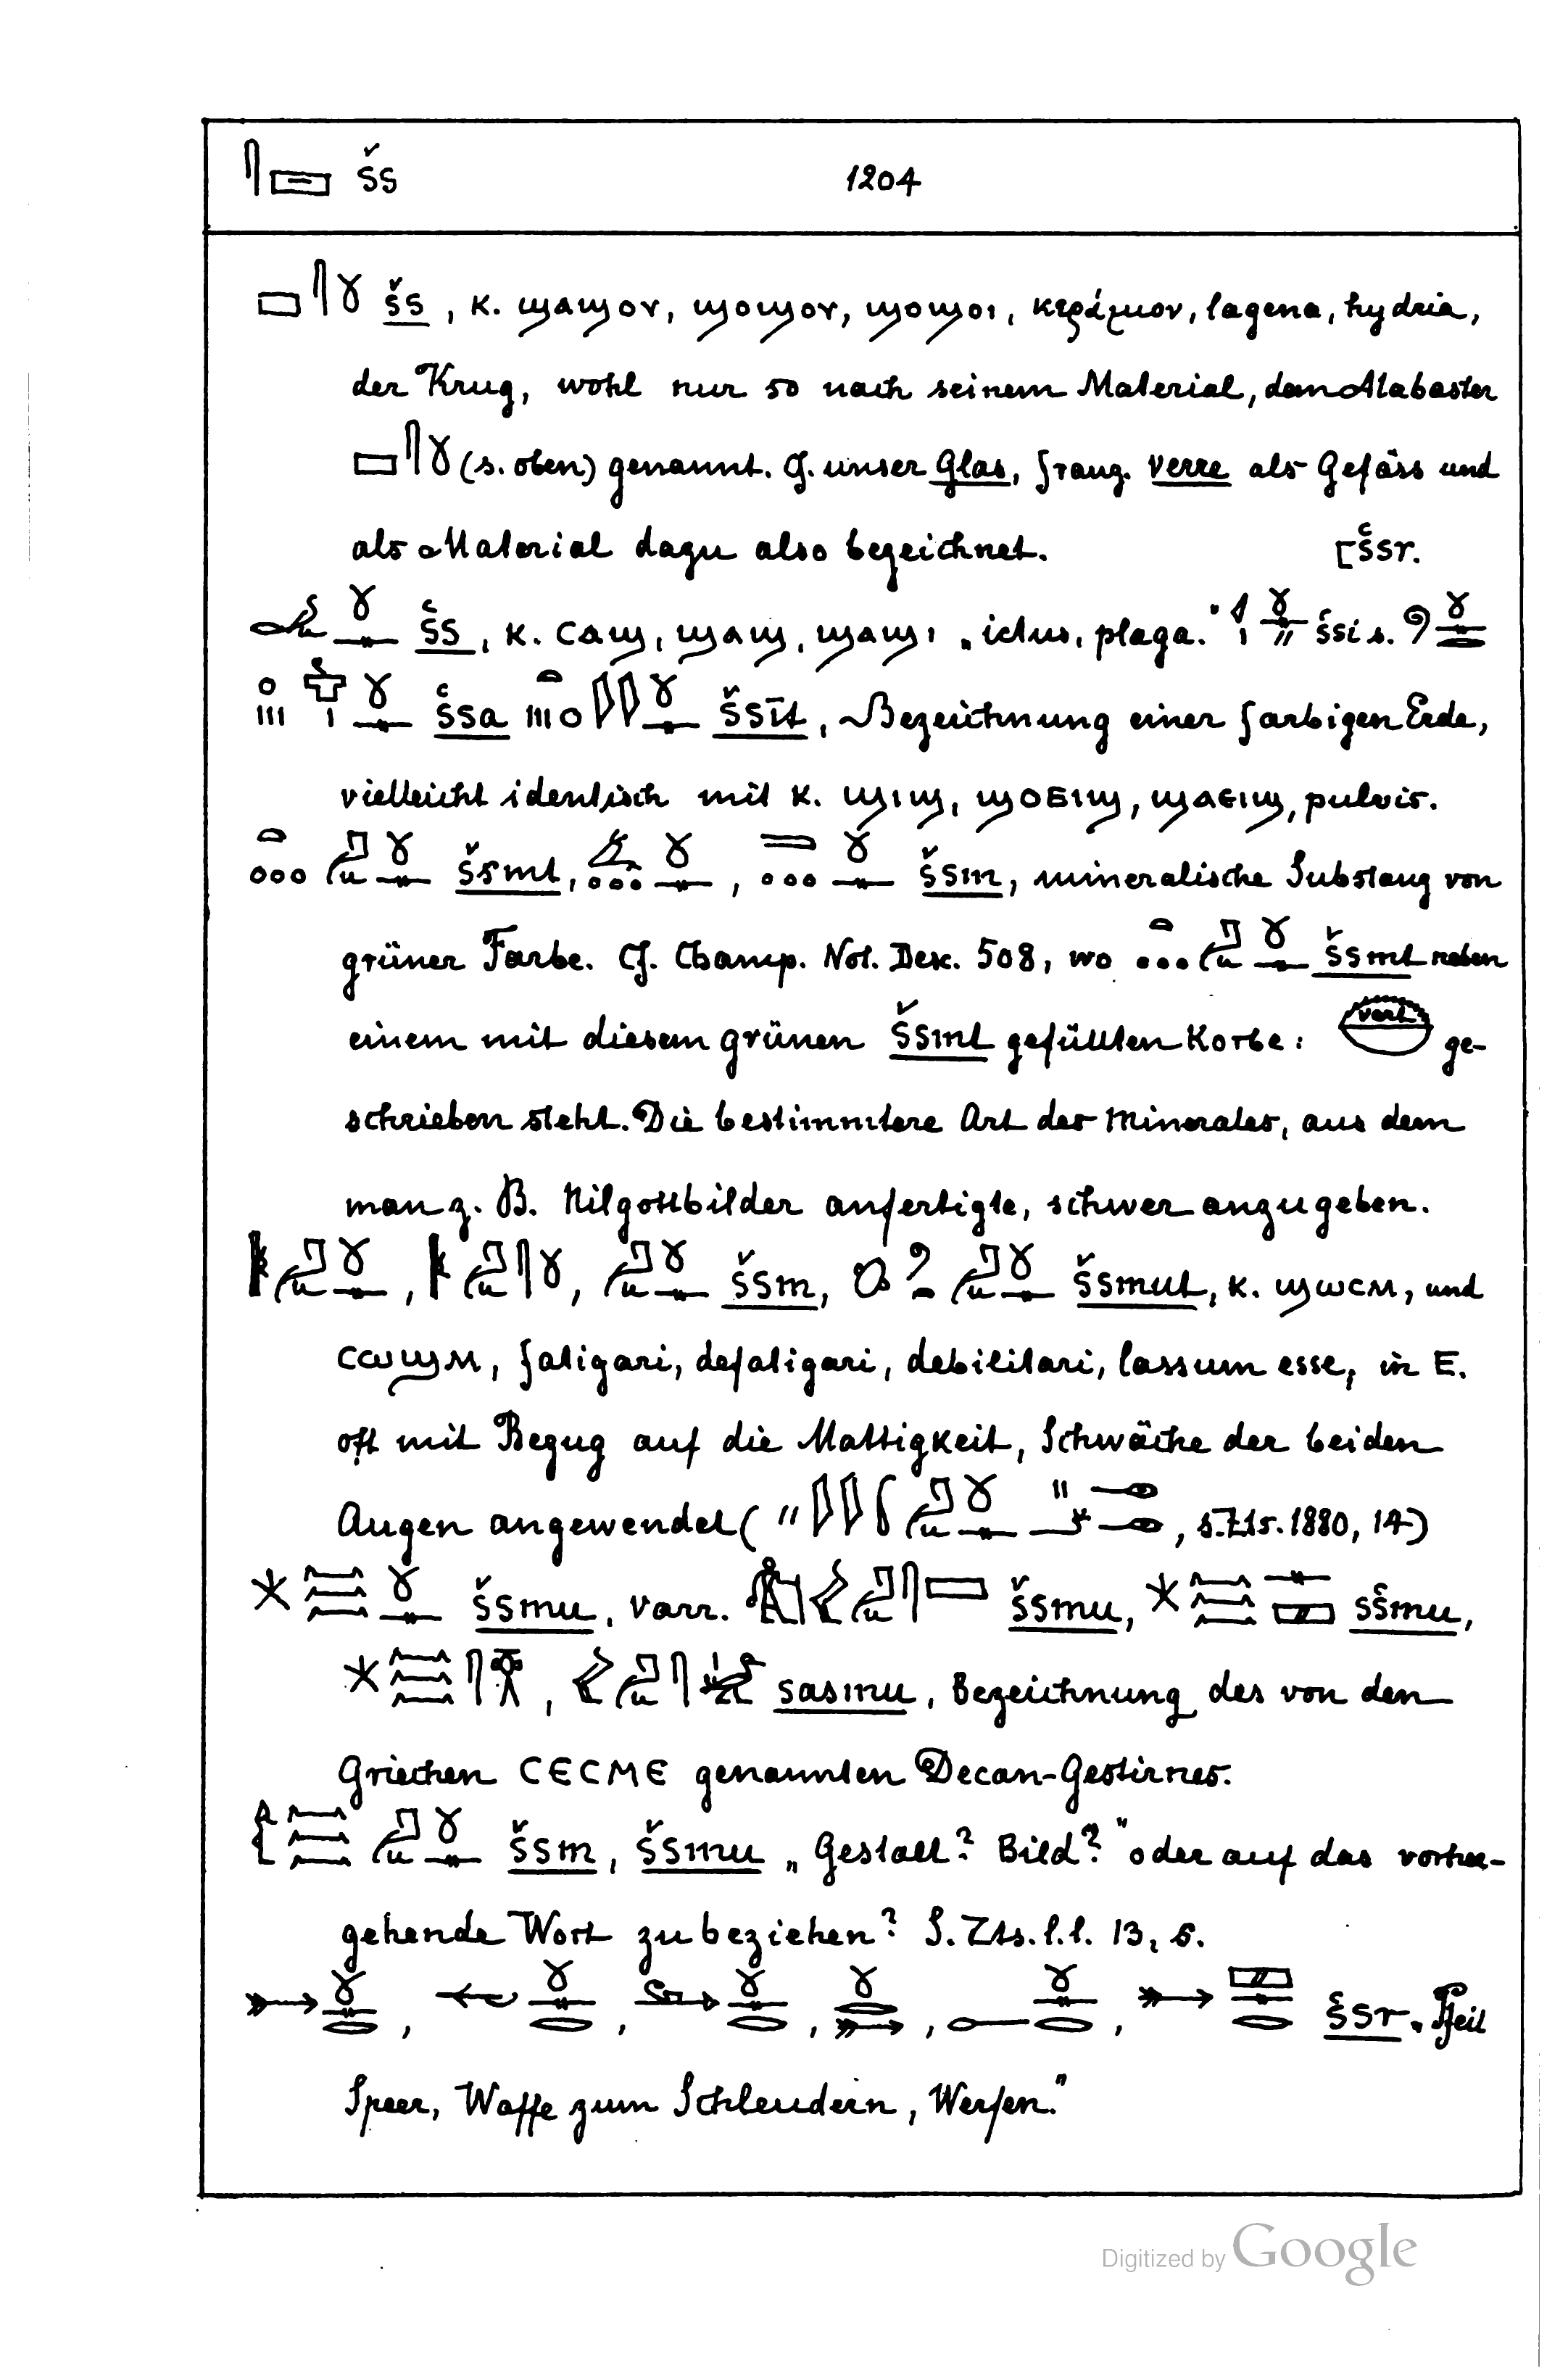 šs 1204
šs, K. ϣⲁϣⲟⲩ, ϣⲟϣⲟⲩ, ϣⲟϣⲟⲓ, κεράμιον, lagena, hydria,
der Krug, wohl nur so nach seinem Material, dem Alabaster
(s. oben) genannt. Cf. unser Glas, franz. verre als Gefäss und
als Material dazu also bezeichnet. [šsr.
šs, K. ⲥⲁϣ, ϣⲁϣ, ϣⲁϣⲓ „ictus, plaga." šsi s.
šsa šsīt, Bezeichnung einer farbigen Erde,
vielleicht identisch mit K. ϣⲓϣ, ϣⲟⲉⲓϣ, ϣⲁⲉⲓϣ, pulvis.
šsmt, šsm, mineralische Substanz von
grüner Farbe. Cf. Champ. Not. Desc. 508, wo šsmt neben
einem mit diesem grünen šsmt gefüllten Korbe: vert ge-
schrieben steht. Die bestimmtere Art des Minerales, aus dem
man z. B. Nilgottbilder anfertigte, schwer anzugeben.
šsm, šsmut, K. ϣⲱⲥⲙ, und
ⲥⲱϣⲙ, fatigari, defatigari, debilitari, lassum esse, in E.
oft mit Bezug auf die Mattigkeit, Schwäche der beiden
Augen angewendet ( , s. Zts. 1880, 14)
šsmu, varr. šsmu, sšmu,
sasmu, Bezeichnung des von den
Griechen CECME genannten Decan-Gestirnes.
šsm, šsmu „Gestalt? Bild?" oder auf das vorher-
gehende Wort zu beziehen? S. Zts. l.l. 13, 6.
šsr „Pfeil
Speer, Waffe zum Schleudern, Werfen."
Digitized by Google